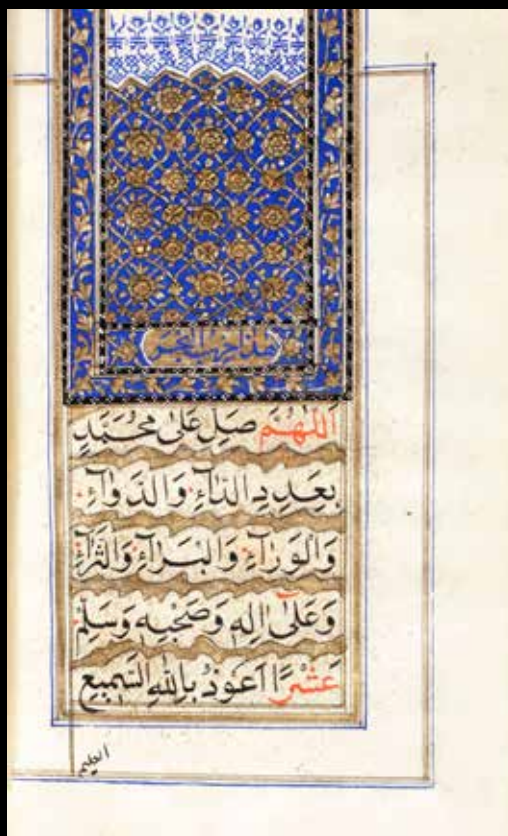 هذا حزب البحر
اَللّٰهُمَّ صَلِّ عَلٰى مُحَمَّدٍ
بِعَدَدِ الدَّآءِ وَالدَّوَآءِ
وَالْوَرَآءِ وَالْبَرَآءِ وَالثَّرَآءِ
وَعَلٰى اٰلِهٖ وَصَحْبِهٖ وَسَلِّمْ
عَشْرًا اَعُوذُ بِاللّٰهِ السَّمِيعِ
العليم